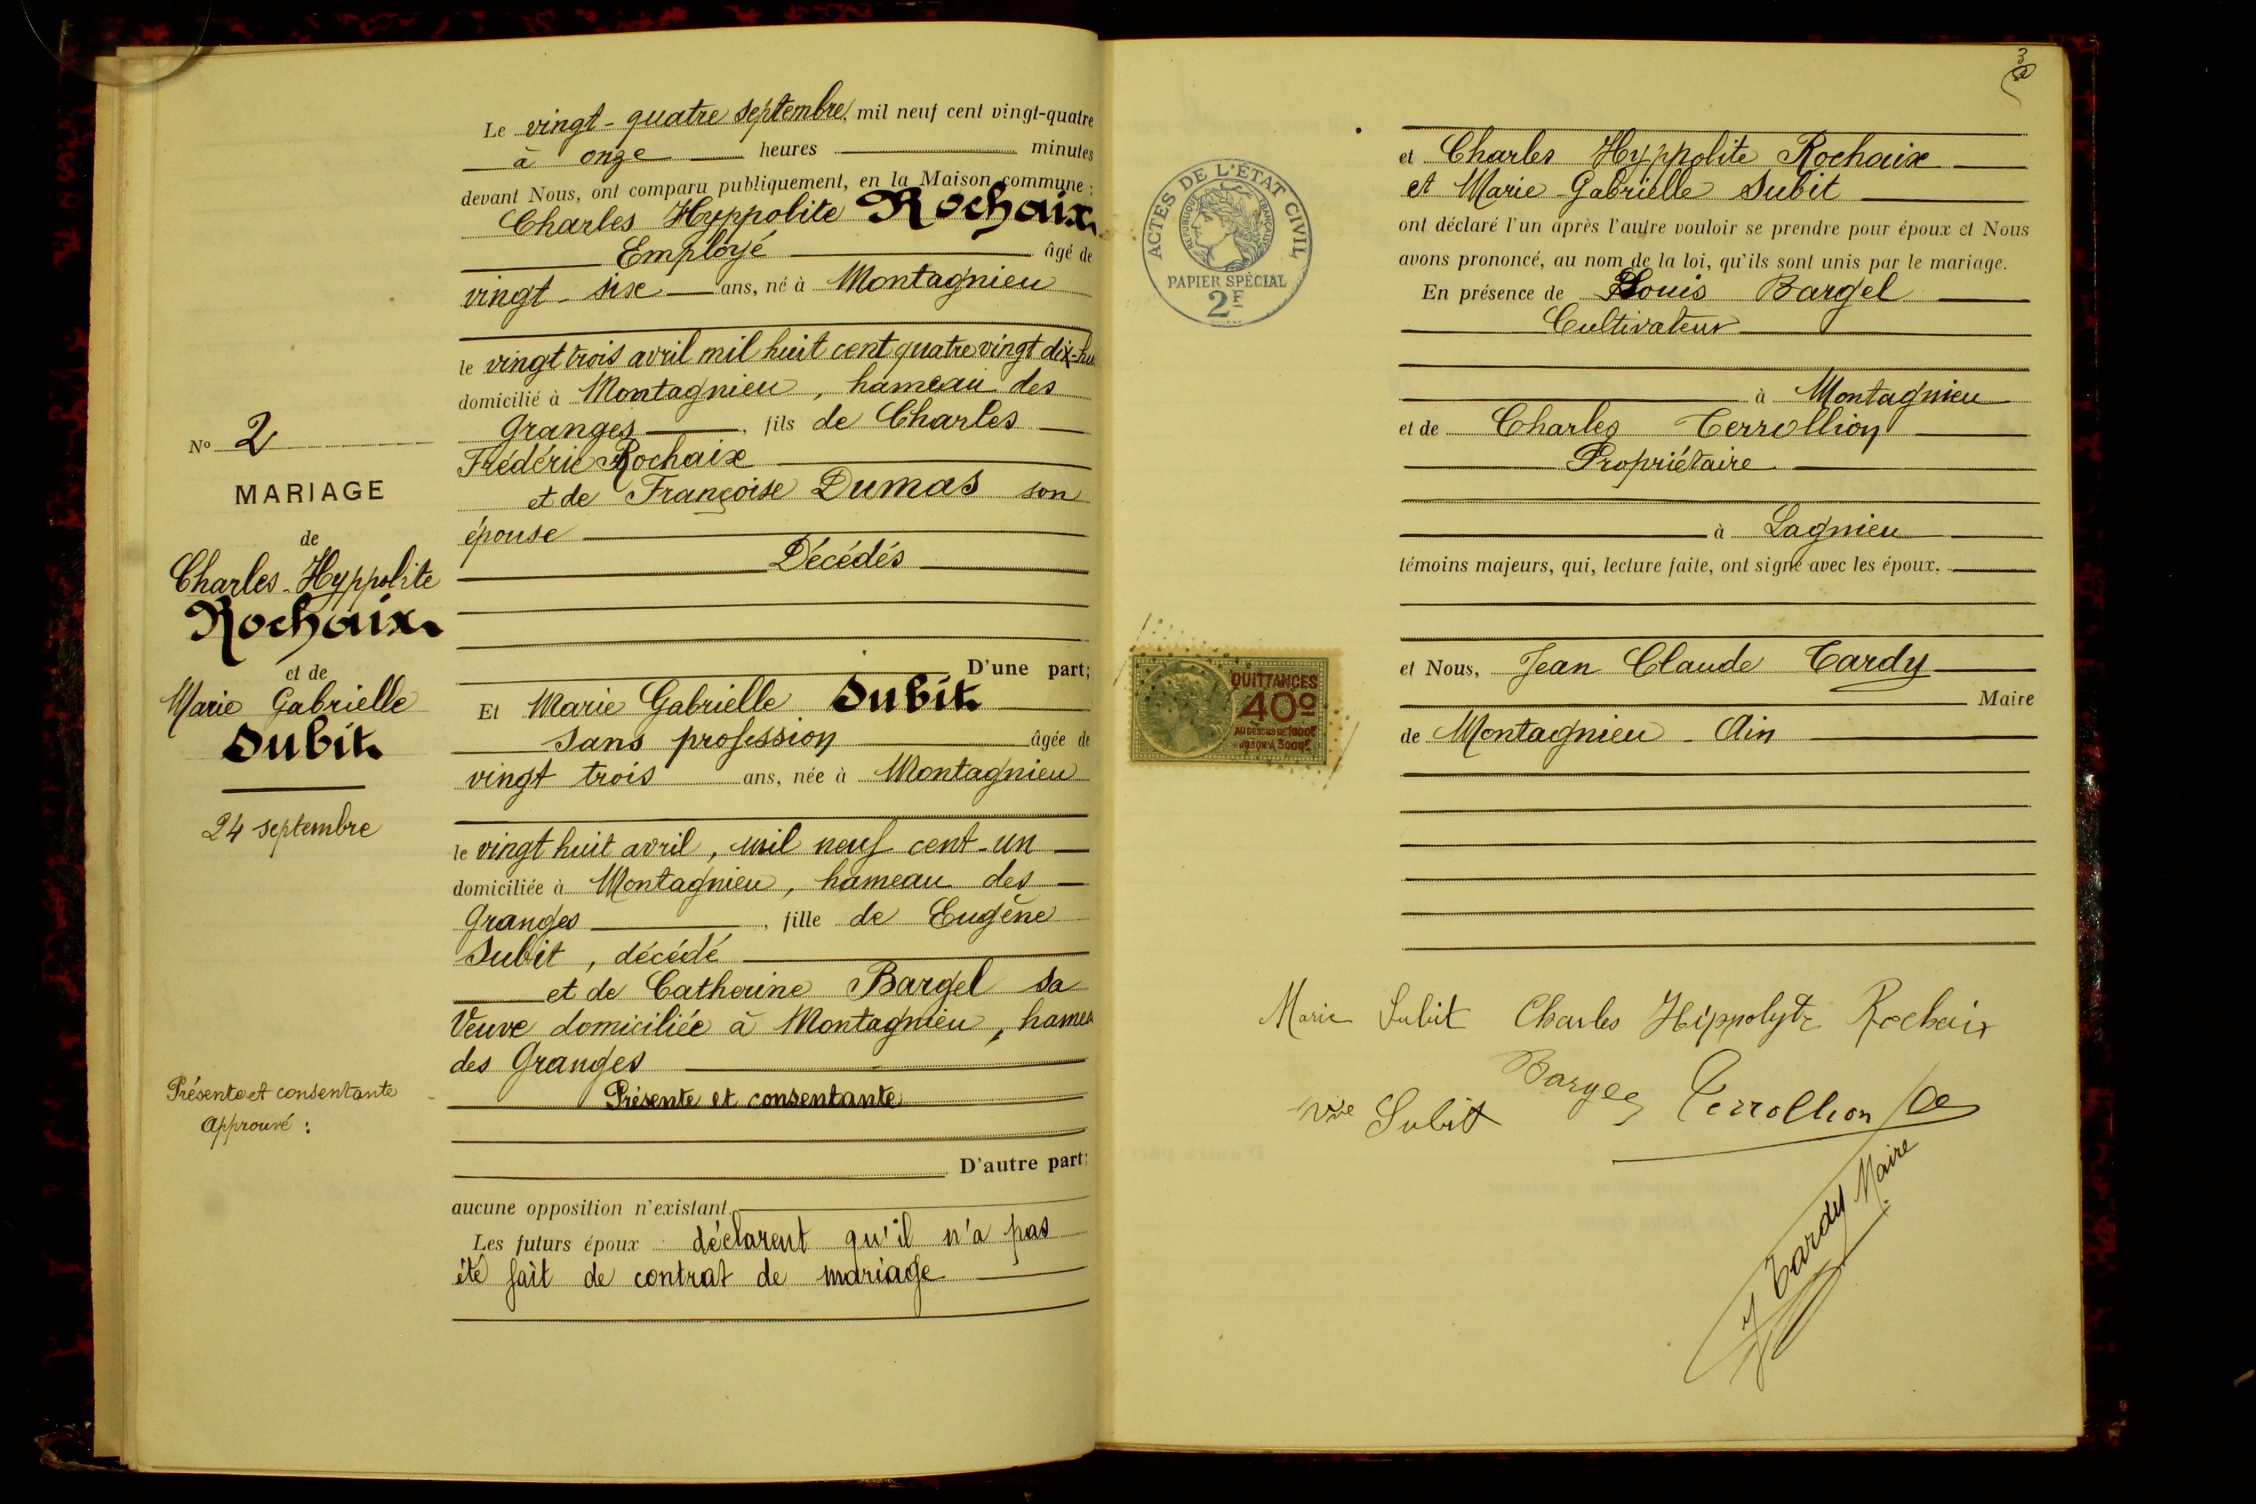 Le vingt-quatre septembre, mil neuf cent vingt-quatre
à onze heures minutes
devant Nous, ont comparu publiquement, en la Maison commune :
Charles Hyppolite Rochaix
Employé âgé de
vingt-six ans, né à Montagnieu
le vingt trois avril mil huit cent quatre vingt dix-hu
domicilié à Montagnieu, hameau des
Granges, fils de Charles
Frédéric Rochaix
et de Françoise Dumas son
épouse
Décédés
D'une part;
Et Marie Gabrielle Subit
Sans profession âgée de
vingt trois ans, née à Montagnieu
le vingt huit avril, mil neuf cent-un
domiciliée à Montagnieu, hameau des
Granges, fille de Eugène
Subit, décédé
et de Catherine Bargel sa
Veuve domiciliée à Montagnieu, hamea
des Granges
Présente et consentante
D'autre part;
aucune opposition n'existant.
Les futurs époux déclarent qu'il n'a pas
été fait de contrat de mariage
No 2
MARIAGE
de
Charles-Hyppolite
Rochaix
et de
Marie Gabrielle
Subit
24 septembre
Présente et consentante
Approuvé :
3
ACTES DE L'ÉTAT CIVIL
RÉPUBLIQUE FRANÇAISE
PAPIER SPÉCIAL
2F
QUITTANCES
40c
AU DESSUS DE 1000F
JUSQU'À 3000F
et Charles Hyppolite Rochaix
et Marie-Gabrielle Subit
ont déclaré l'un après l'autre vouloir se prendre pour époux et Nous
avons prononcé, au nom de la loi, qu'ils sont unis par le mariage.
En présence de Louis Bargel
Cultivateur
à Montagnieu
et de Charles Terrollion
Propriétaire
à Lagnieu
témoins majeurs, qui, lecture faite, ont signé avec les époux.
et Nous, Jean Claude Tardy
Maire
de Montagnieu - Ain
Marie Subit Charles Hippolyte Rochaix
Bargel Terrollion
Vve Subit
J Tardy Maire